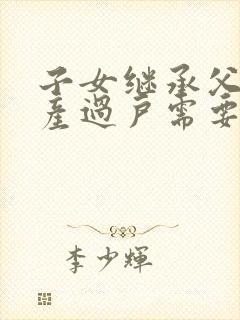 子女继承父
產過戶需要
李少輝